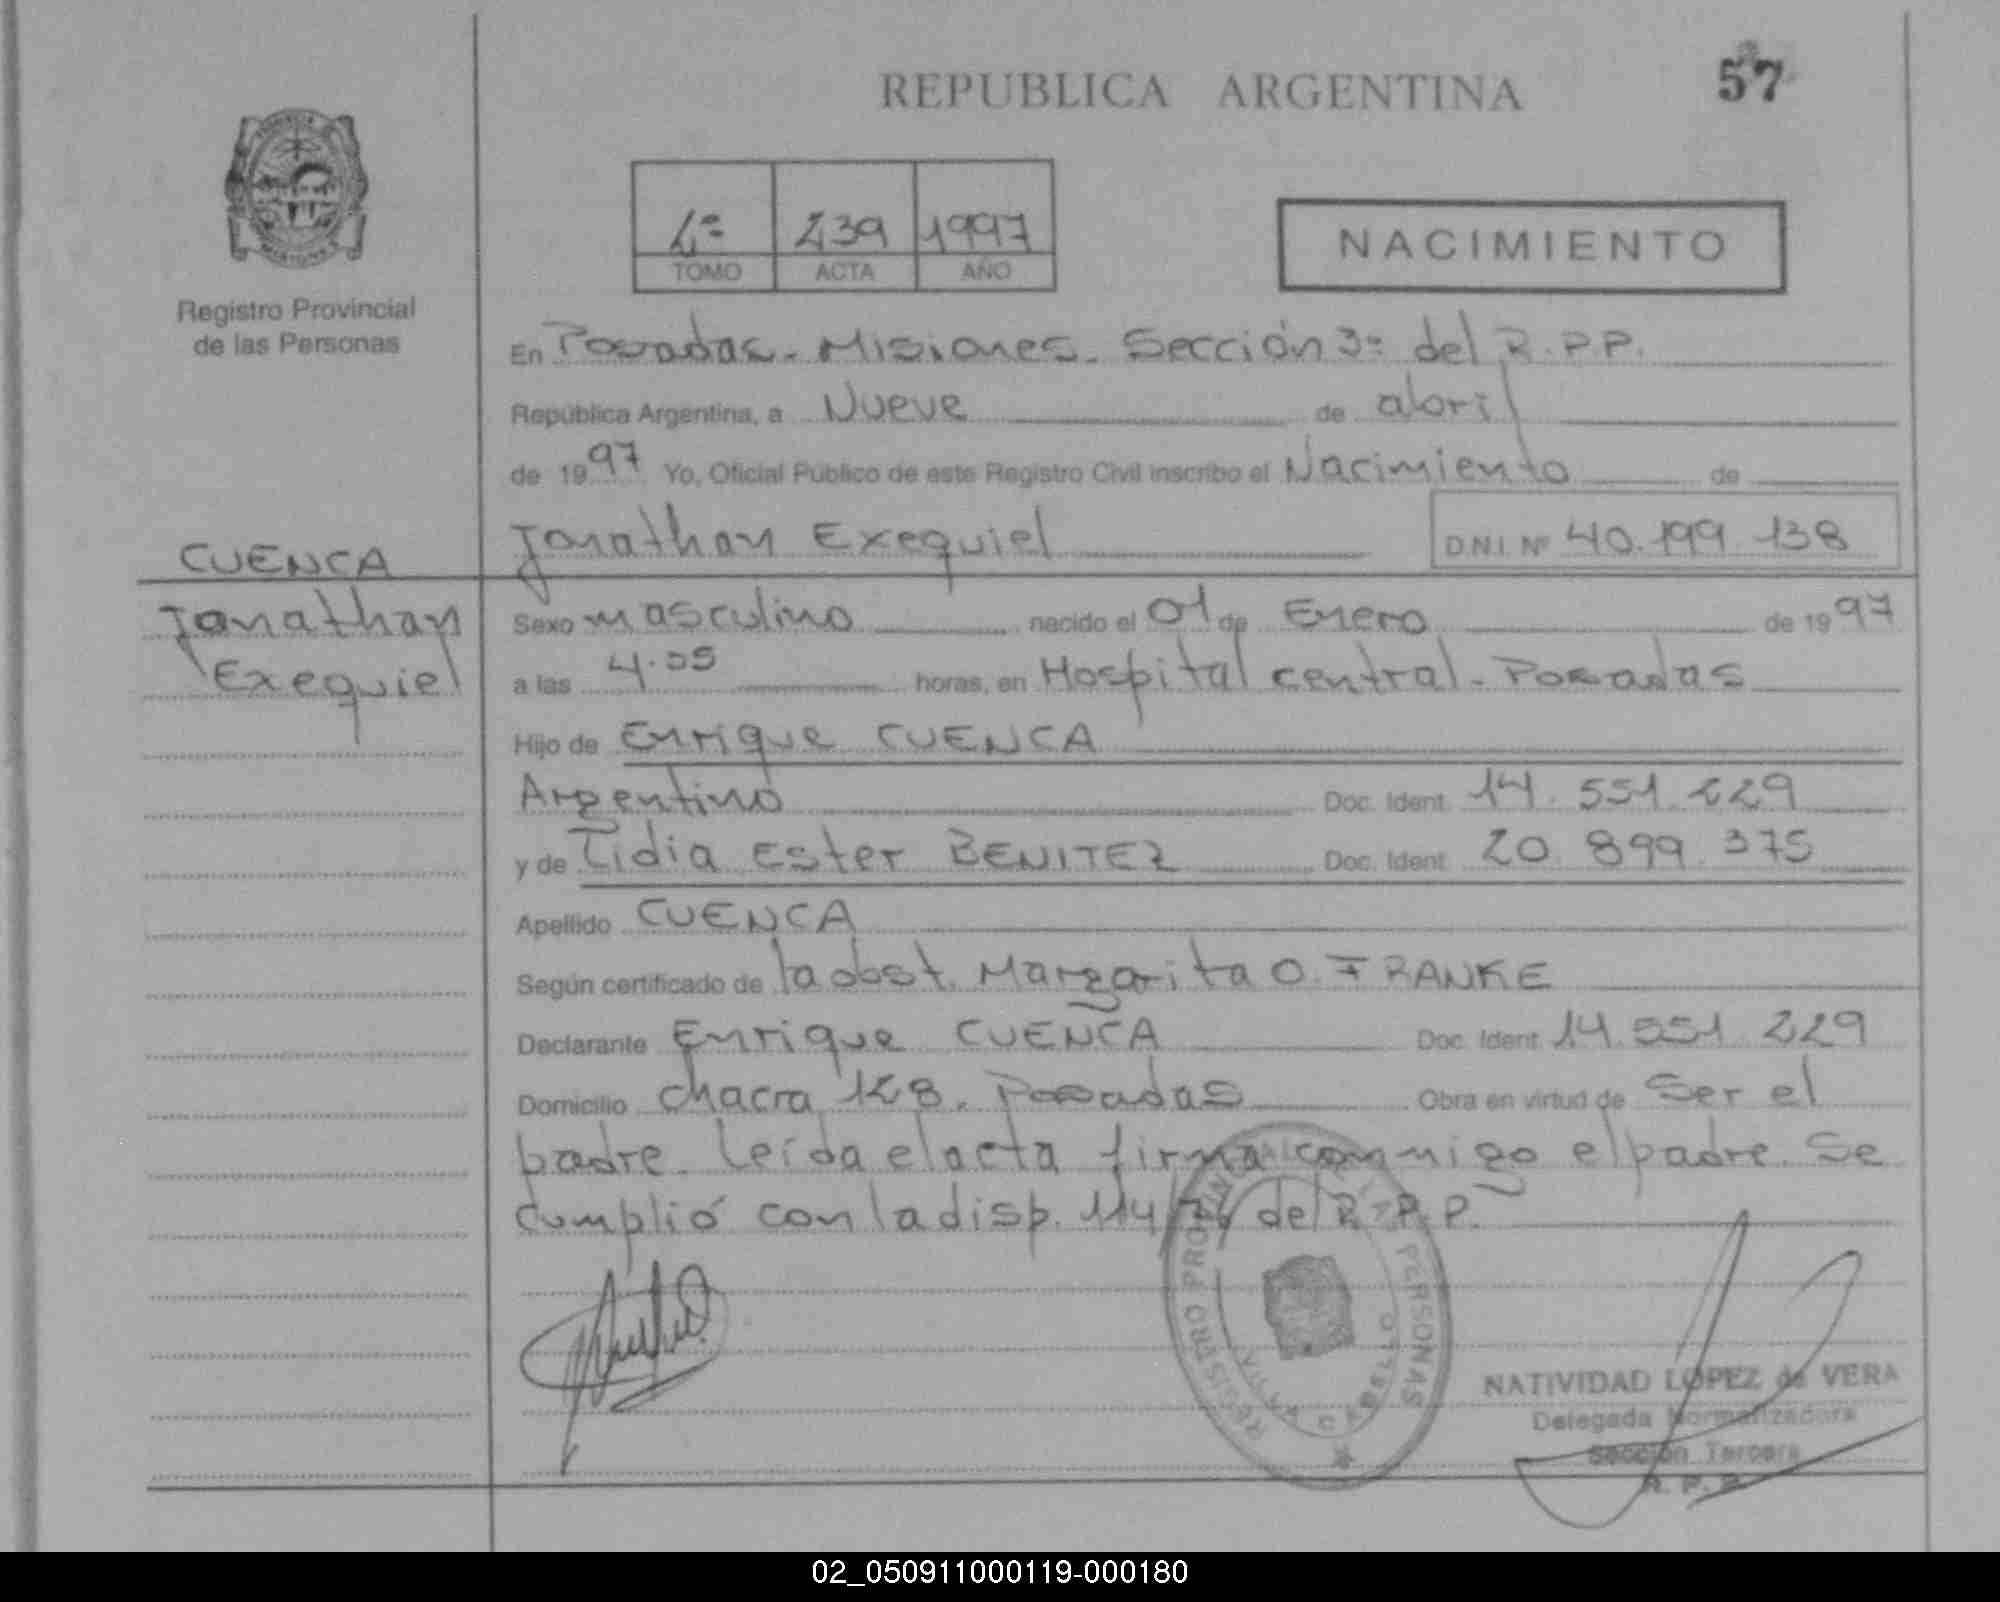 REPUBLICA ARGENTINA
57
Registro Provincial
de las Personas
1º 239 1997
TOMO ACTA AÑO
NACIMIENTO
En Posadas - Misiones - Sección 3ª del R.P.P.
República Argentina, a Nueve de abril
de 1997 Yo, Oficial Público de este Registro Civil inscribo el Nacimiento de
CUENCA
Jonathan Exequiel
Jonathan Exequiel D.N.I. Nº 40.199.138
Sexo masculino nacido el 01 de Enero de 1997
a las 4.55 horas, en Hospital central - Posadas
Hijo de Enrique CUENCA
Argentino Doc. Ident. 14.551.229
y de Lidia Ester BENITEZ Doc. Ident. 20.899.375
Apellido CUENCA
Según certificado de la obst. Margarita O. FRANKE
Declarante Enrique CUENCA Doc. Ident. 14.551.229
Domicilio chacra 128. Posadas Obra en virtud de Ser el
padre. Leída el acta firma conmigo el padre. Se
cumplió con la disp. 114/ del R.P.P.
REGISTRO PROVINCIAL DE LAS PERSONAS
VILLA CABELLO
NATIVIDAD LOPEZ de VERA
Delegada Normalizadora
Sección Tercera
R. P. P.
02_050911000119-000180